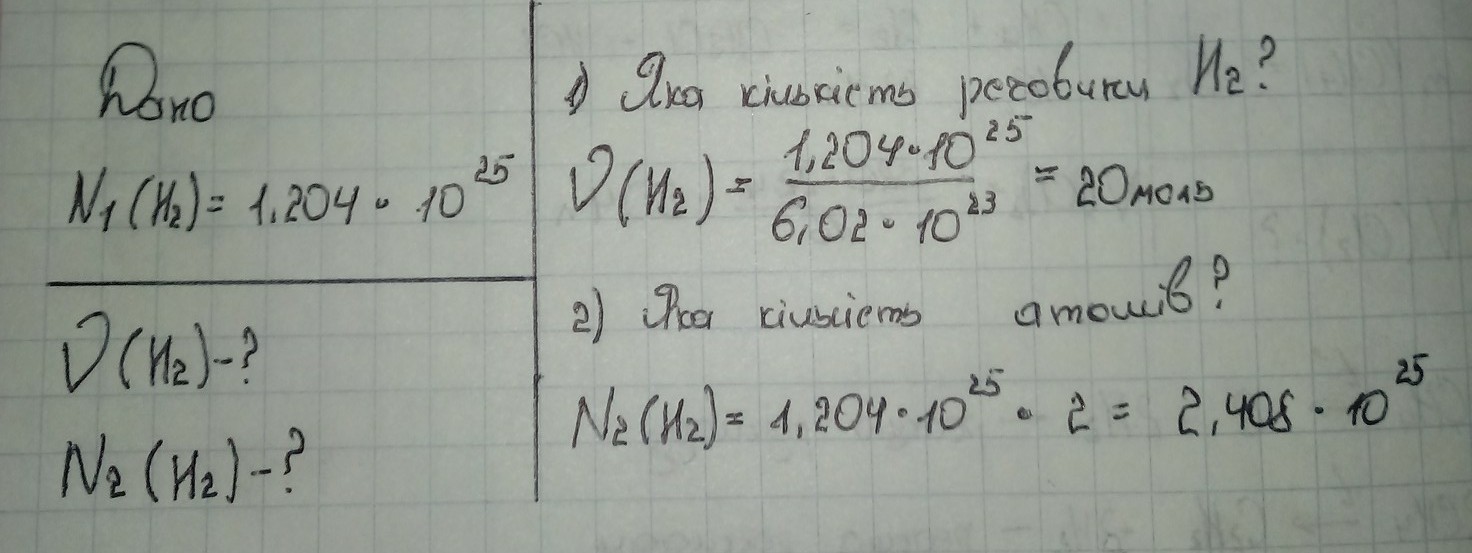 Дано
N₁(H₂) = 1,204 · 10²⁵
ν(H₂) - ?
N₂(H₂) - ?
1) Яка кількість речовини H₂?
ν(H₂) = 1,204·10²⁵ / 6,02·10²³ = 20 моль
2) Яка кількість атомів?
N₂(H₂) = 1,204·10²⁵ · 2 = 2,408 · 10²⁵